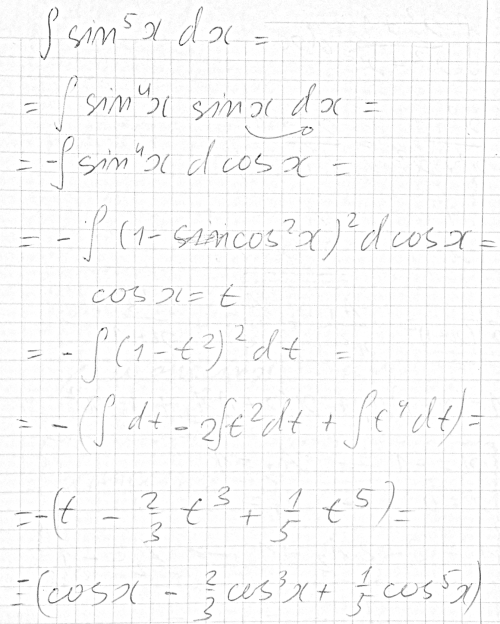 ∫ sin⁵x dx =
= ∫ sin⁴x sinx dx =
= -∫ sin⁴x d cos x =
= - ∫ (1 - sin cos²x)² d cos x =
cos x = t
= - ∫ (1 - t²)² dt =
= - (∫ dt - 2∫t²dt + ∫t⁴dt) =
= -(t - 2/3 t³ + 1/5 t⁵) =
= -(cosx - 2/3 cos³x + 1/5 cos⁵x)